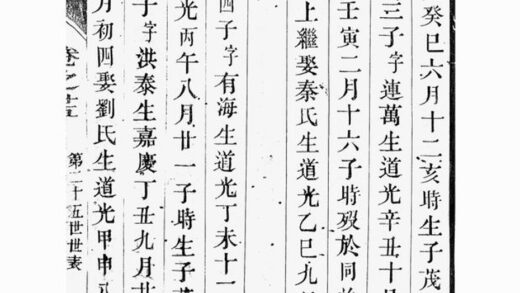 癸巳六月十二亥時生子茂
三子字連萬生道光辛丑十月
壬寅二月十六子時歿於同
上繼娶秦氏生道光乙巳九
四子字有海生道光丁未十一
光丙午八月廿一子時生子
子字洪泰生嘉慶丁丑九月廿
月初四娶劉氏生道光甲申
卷之廿五
第二十五世世表